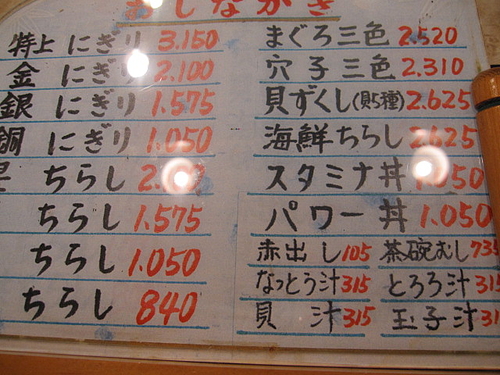 おしながき
特上 にぎり 3.150
金 にぎり 2.100
銀 にぎり 1.575
銅 にぎり 1.050
ちらし
ちらし 1.575
ちらし 1.050
ちらし 840
まぐろ三色 2.520
穴子三色 2.310
貝ずくし(貝5種) 2.625
海鮮ちらし 2.625
スタミナ丼 1.050
パワー丼 1.050
赤出し 105 茶碗むし 73
なっとう汁 315 とろろ汁 315
貝汁 315 玉子汁 31